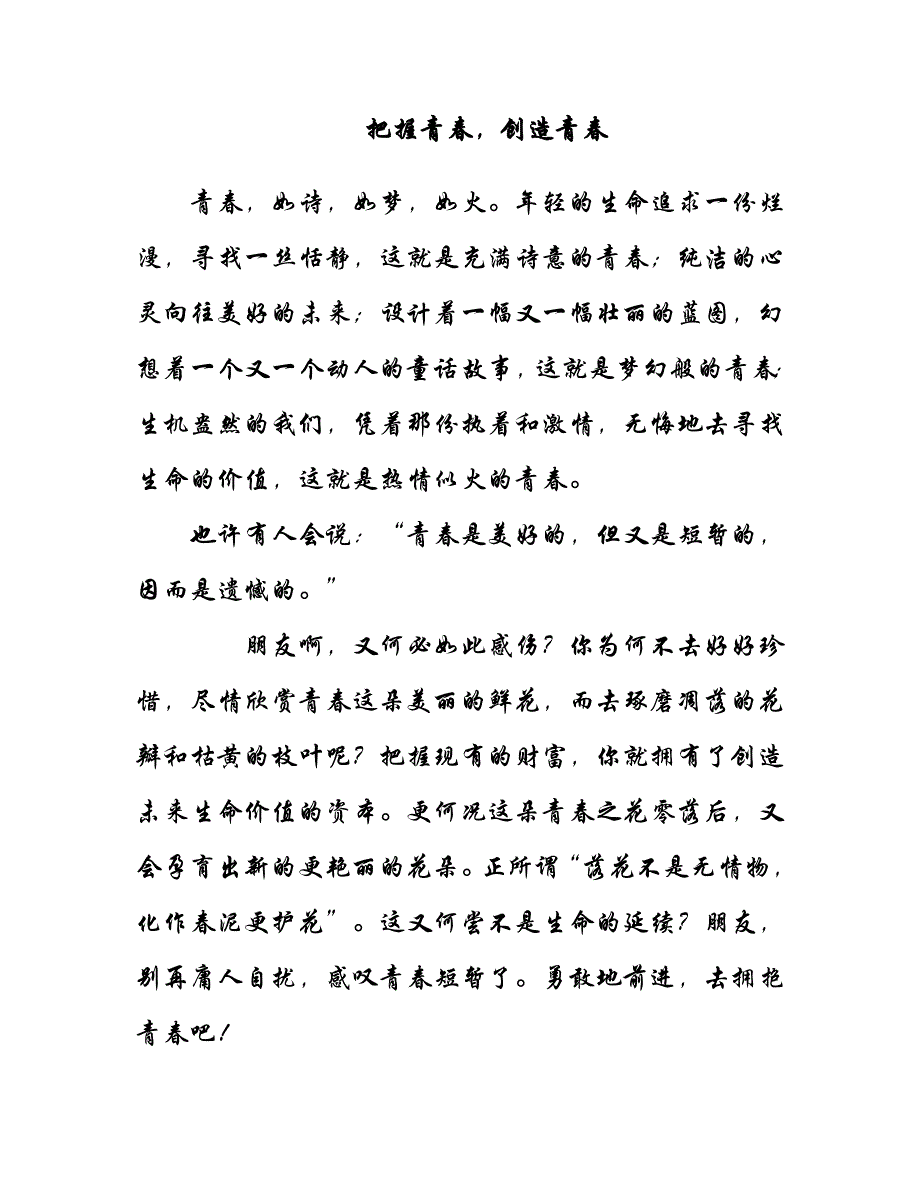 把握青春，创造青春
青春，如诗，如梦，如火。年轻的生命追求一份烂
漫，寻找一丝恬静，这就是充满诗意的青春；纯洁的心
灵向往美好的未来；设计着一幅又一幅壮丽的蓝图，幻
想着一个又一个动人的童话故事，这就是梦幻般的青春；
生机盎然的我们，凭着那份执着和激情，无悔地去寻找
生命的价值，这就是热情似火的青春。
也许有人会说：“青春是美好的，但又是短暂的，
因而是遗憾的。”
朋友啊，又何必如此感伤？你为何不去好好珍
惜，尽情欣赏青春这朵美丽的鲜花，而去琢磨凋落的花
瓣和枯黄的枝叶呢？把握现有的财富，你就拥有了创造
未来生命价值的资本。更何况这朵青春之花零落后，又
会孕育出新的更艳丽的花朵。正所谓“落花不是无情物，
化作春泥更护花”。这又何尝不是生命的延续？朋友，
别再庸人自扰，感叹青春短暂了。勇敢地前进，去拥抱
青春吧！